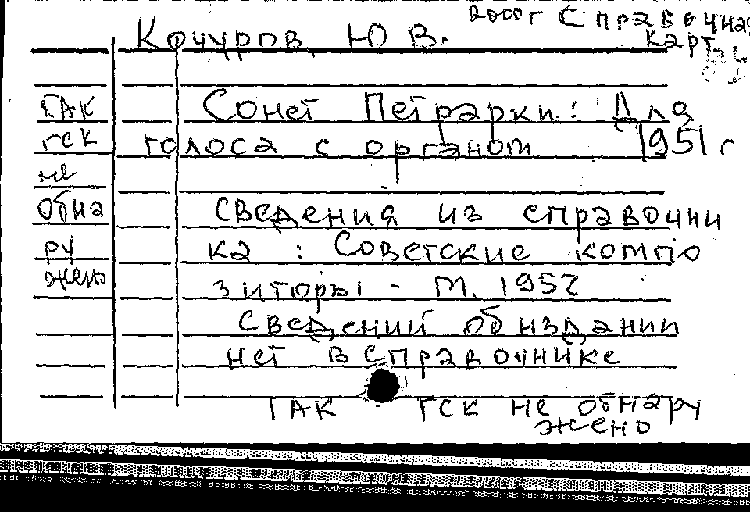 Справочная
Кочуров, Ю В.
карт
ГАК
гск
не
обна
ру
жено
Сонет Петрарки: Для
голоса с органом 1951 г
сведения из справочни
ка : Советские компо
зиторы - М. 1957
сведений об издании
нет в справочнике
ГАК ГСК не обнару
жено